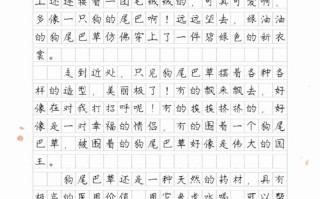 上还连接着一团毛绒绒的，可真可爱啊，
多像一只狗的尾巴啊！远远望去，绿油油
的狗尾巴草仿佛穿上了一件碧绿色的新衣
裳。
走到近处，只见狗尾巴草摆着各种各
样的造型，美丽极了！有的飘来飘去，好
像在对我打招呼呢！有的挨挨挤挤的，好
像是一对幸福的情侣，有的围着一个狗尾
巴草，被围着的狗尾巴草好像是伟大的国
王。
狗尾巴草还是一种天然的药材，具有
极高的医用价值，用它来煮水喝，可以帮